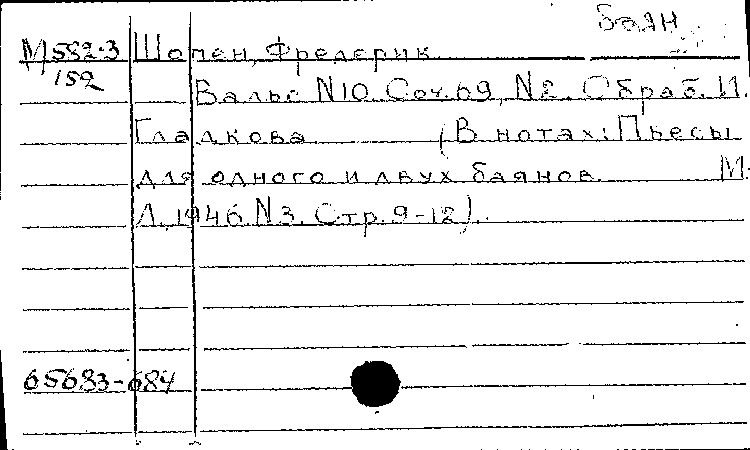 Баян
М582-3 Шопен, Фредерик
152 Вальс N10. Соч. 69, N2. Обраб. И.
Гладкова (В нотах: Пьесы
для одного и двух баянов. М.-
Л., 1946. N3. Стр. 9-12).
65683-684